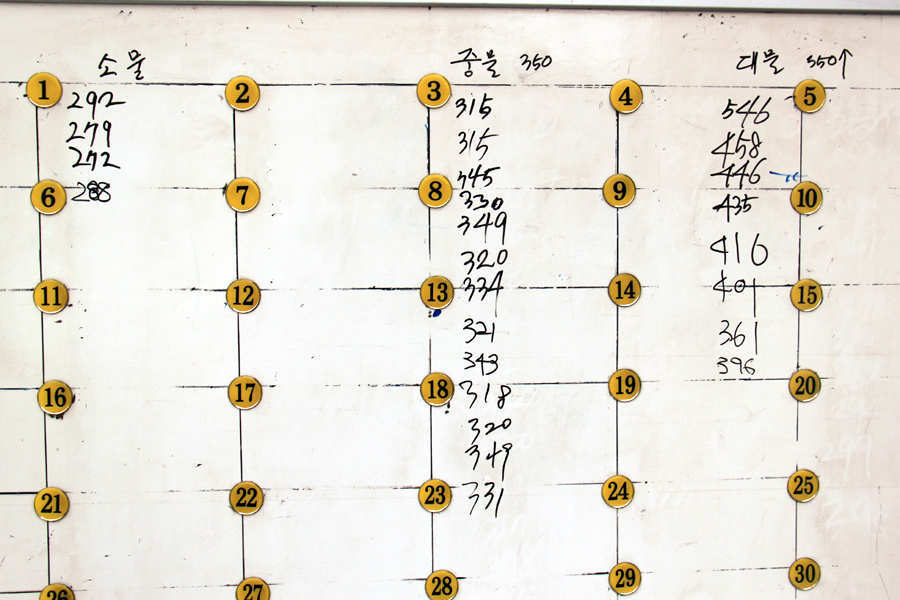 소물
292
279
272
288
중물 350
315
315
345
330
349
320
334
321
343
318
320
349
331
대물 350↑
546
458
446
435
416
401
361
396
1 2 3 4 5
6 7 8 9 10
11 12 13 14 15
16 17 18 19 20
21 22 23 24 25
26 27 28 29 30